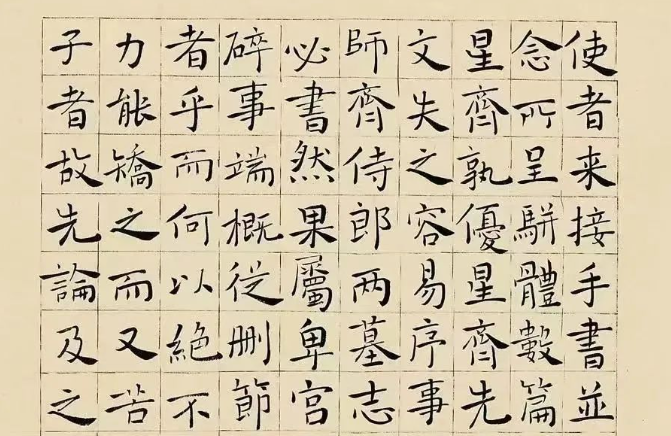 使者来接手書並
念所呈駢體數篇
星齊孰優星齊先
文失之容易序事
師齊侍郎两墓志
必書然果屬卑宮
碎事端概従删節
者乎而何以絕不
力能矯之而又苦
子者故先論及之